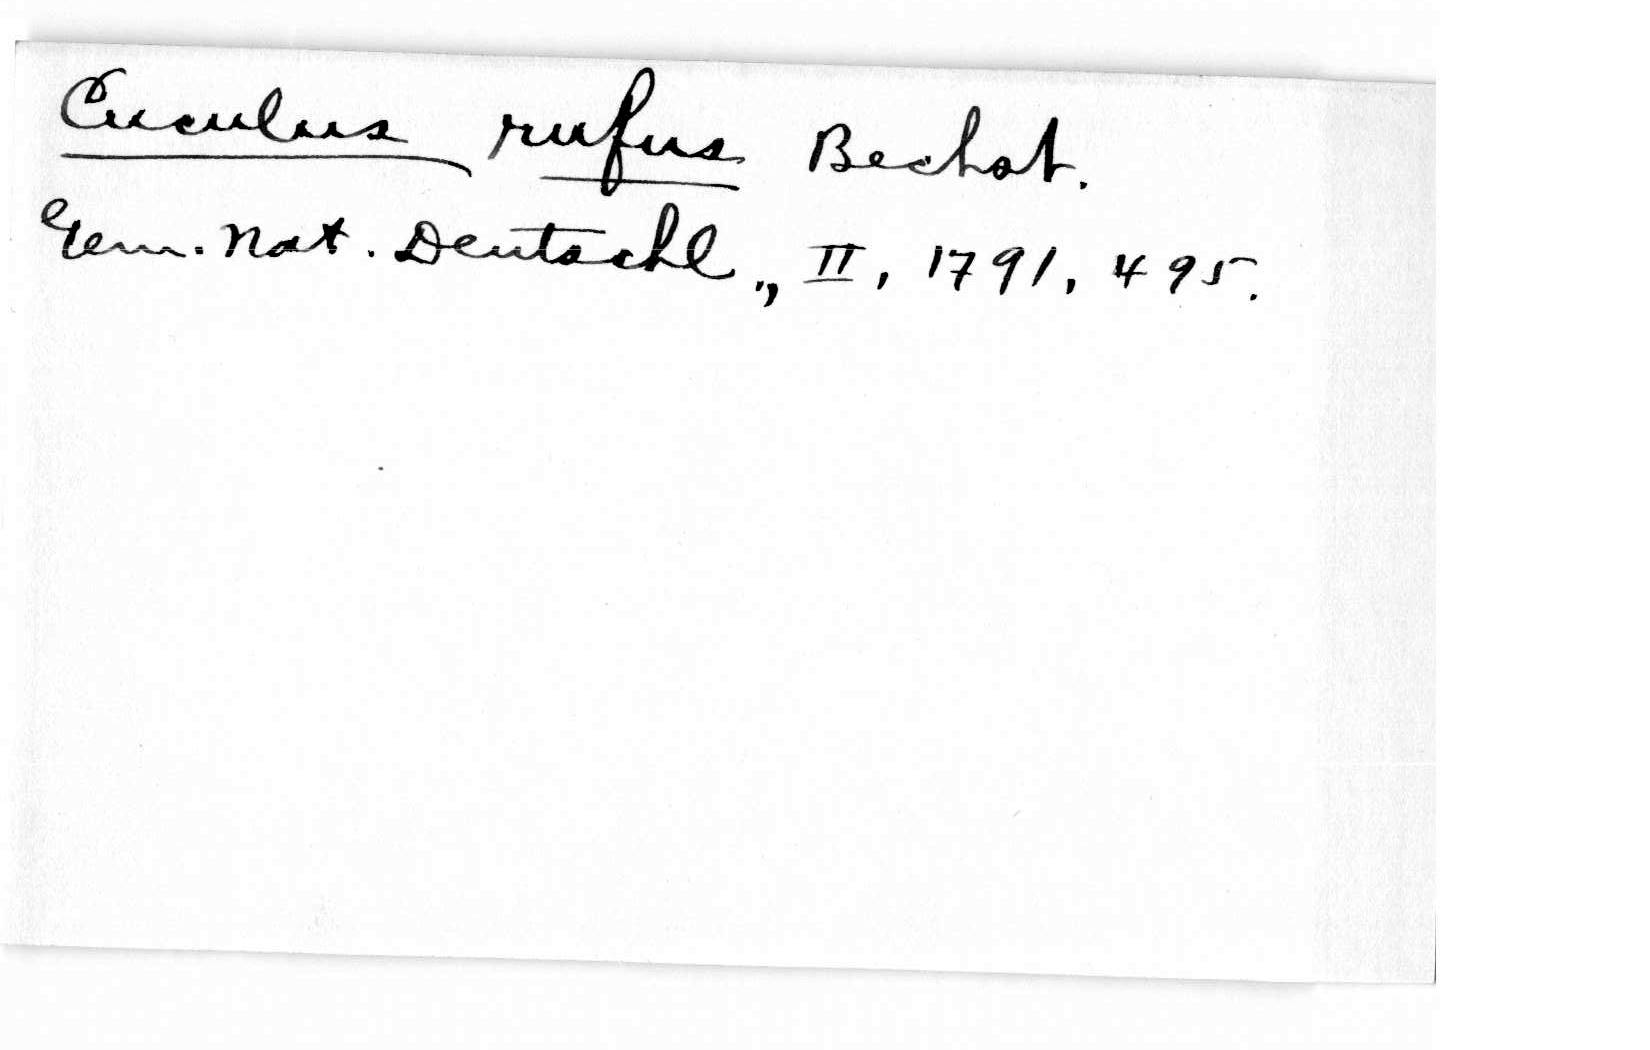 Cuculus rufus Bechst.
Gem. Nat. Deutschl., II, 1791, 495.